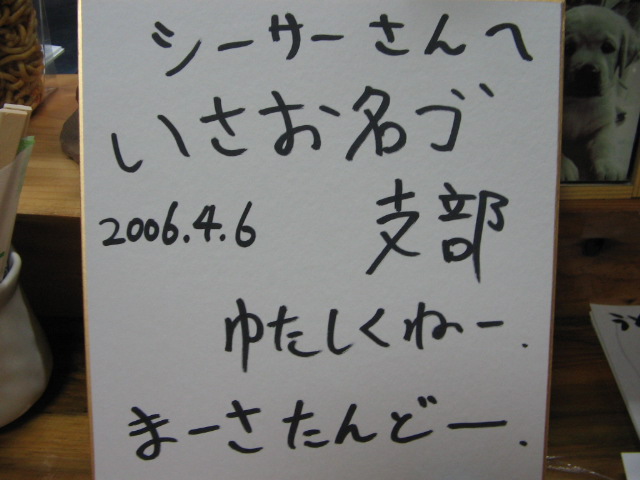 シーサーさんへ
いさお名ゴ
支部
2006.4.6
ゆたしくねー.
まーさたんどー.